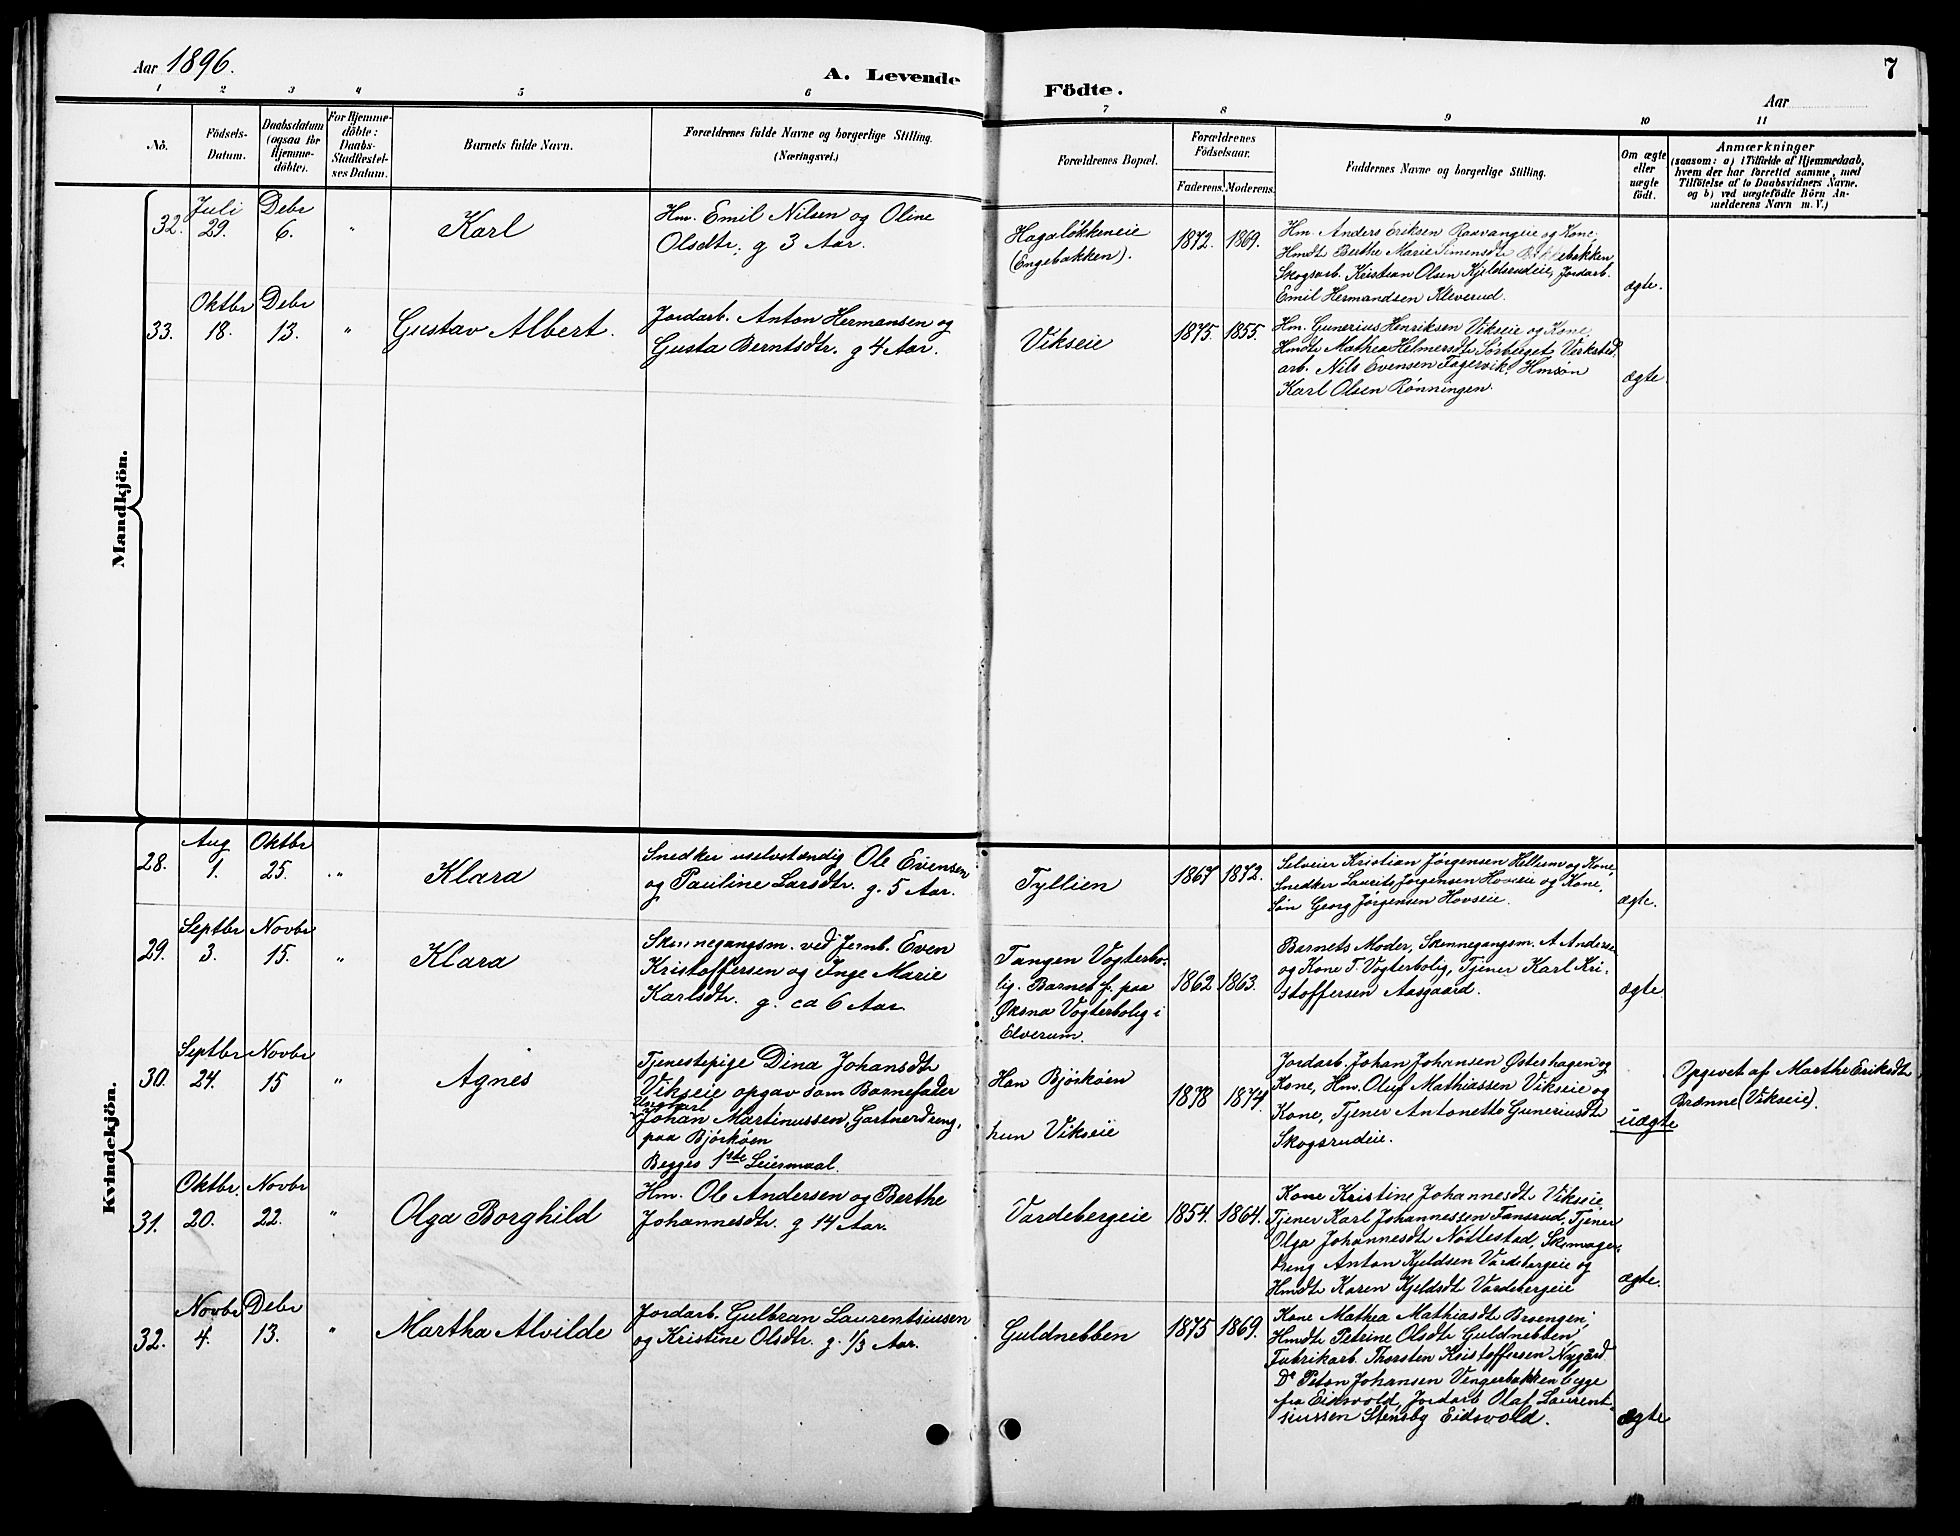 Aar 1896.
A. Levende
Födte.
7
Aar
1 2 3 4 5 6 7 8 9 10 11
No.
Födsels-
Datum.
Daabsdatum
(ogsaa for
Hjemme-
döbte).
For Hjemme-
döbte:
Daabs-
Stadfæstel-
ses Datum.
Barnets fulde Navn.
Forældrenes fulde Navne og borgerlige Stilling.
(Næringsvei.)
Forældrenes Bopæl.
Forældrenes
Födselsaar.
Faderens. Moderens.
Faddernes Navne og borgerlige Stilling.
Om ægte
eller
uægte
födt.
Anmærkninger
(saasom: a) i Tilfælde af Hjemmedaab,
hvem der har forrettet samme, med
Tilföielse af to Daabsvidners Navne.
og b) ved uægtefödte Börn An-
melderens Navn m. V.)
Mandkjön.
32.
Juli
29.
Debr
6.
"
Karl
Hm. Emil Nilsen og Oline
Olsdtr. g 3 Aar.
Hagaløkkeneie
(Engebakken).
1872. 1869.
Hm. Anders Eriksen Raavangeie og Kone,
Hmdt Berthe Marie Simensdt
Skogsarb. Kristian Olsen Kjeldsrudeie, Jordarb.
Emil Hermandsen Kleverud.
ægte.
33.
Oktbr
18.
Debr
13.
"
Gustav Albert.
Jordarb. Anton Hermansen og
Gusta Berntsdtr. g 4 Aar.
Vikseie
1875. 1855.
Hm. Gunerius Henriksen Vikseie og Kone,
Hmdtr Mathea Helmersdtr Sørberget, Verksted
arb. Nils Evensen Fagervik, Hmsøn
Karl Olsen Rønningen.
ægte.
Kvindekjön.
28.
Aug
1.
Oktbr
25.
"
Klara
Snedker uselvstændig Ole Evensen
og Pauline Larsdtr. g. 5 Aar.
Tyllien
1867 1872.
Selveier Kristian Jørgensen Hellum og Kone,
Snedker Laurits Jørgensen Hovseie og Kone,
Søn Georg Jørgensen Hovseie.
ægte.
29.
Septbr
3.
Novbr
15.
"
Klara
Skinnegangsm. ved Jernb. Even
Kristoffersen og Inge Marie
Karlsdtr. g. ca 6 Aar.
Tangen Vogterbo-
lig. Barnets f. paa
Øksna Vogterbolig i
Elverum.
1862 1863.
Barnets Moder, Skinnegangsm. A Anderse
og Kone T. Vogterbolig, Tjener Karl Kri-
stoffersen Aasgaard.
ægte
30.
Septbr
24.
Novbr
15
"
Agnes
Tjenestepige Dina Johansdtr
Vikseie opgav som Barnefader
Ungkarl
Johan Martinussen, Gartnerdreng,
paa Bjørkøen
Begges 1ste Leiermaal.
Han Bjørkøen
hun Vikseie
1878 1874.
Jordarb. Johan Johansen Østerhagen og
Kone, Hm. Oluf Mathiassen Vikseie og
Kone, Tjener Antonette Guneriusdtr
Skogsrudeie.
uægte
Opgivet af Marthe Eriksdtr
Brænne (Vikseie).
31.
Oktbr.
20.
Novbr
22.
"
Olga Borghild
Hm. Ole Andersen og Berthe
Johannesdtr. g 14 Aar.
Vardebergeie
1854. 1864.
Kone Kristine Johannesdtr Vikseie,
Tjener Karl Johannessen Fansrud, Tjener
Olga Johannesdtr Nøttestad, Skomager-
dreng Anton Kjeldsen Vardebergeie og
Hmdtr Karen Kjeldsdtr Vardebergeie
ægte.
32.
Novbr
4.
Debr
13.
"
Martha Alvilde
Jordarb. Gulbran Laurentsiusen
og Kristine Olsdtr. g. 1/3 Aar.
Guldnebben
1875 1869.
Kone Mathea Mathiasdtr Broengen,
Hmdtr Petrine Olsdtr Guldnebben,
Fabrikarb. Thorsten Kristoffersen Nygård
Do Johansen Vengerbakken begge
fra Eidsvold, Jordarb Olaf Laurent-
siussen Stensby Eidsvold.
ægte